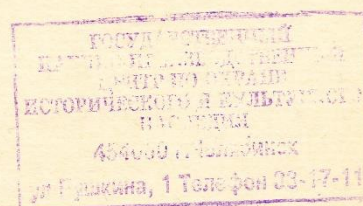 ГОСУДАРСТВЕННЫЙ
ЦЕНТР ПО ОХРАНЕ
ИСТОРИЧЕСКОГО И КУЛЬТУРНОГО
НАСЛЕДИЯ
454000 г. Челябинск
ул Пушкина, 1 Телефон 33-17-11